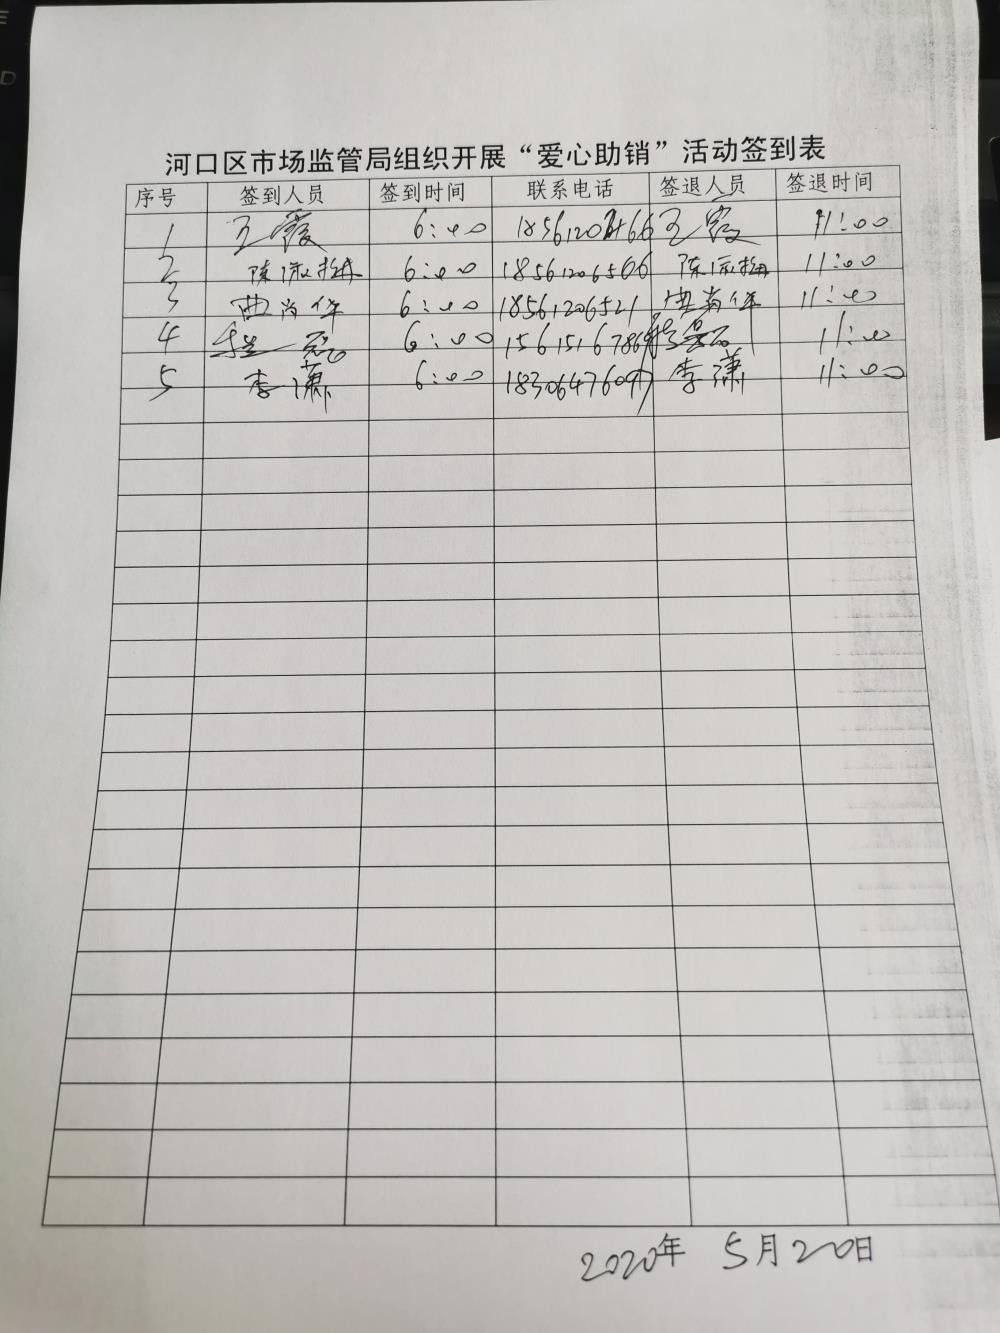 河口区市场监管局组织开展“爱心助销”活动签到表
序号 签到人员 签到时间 联系电话 签退人员 签退时间
1 王霞 6:00 王霞 11:00
2 6:00 18561206566 11:00
3 曲尚华 6:00 18561206521 曲尚华 11:00
4 6:00 11:00
5 李潇 6:00 18306476097 李潇 11:00
2020年 5月20日